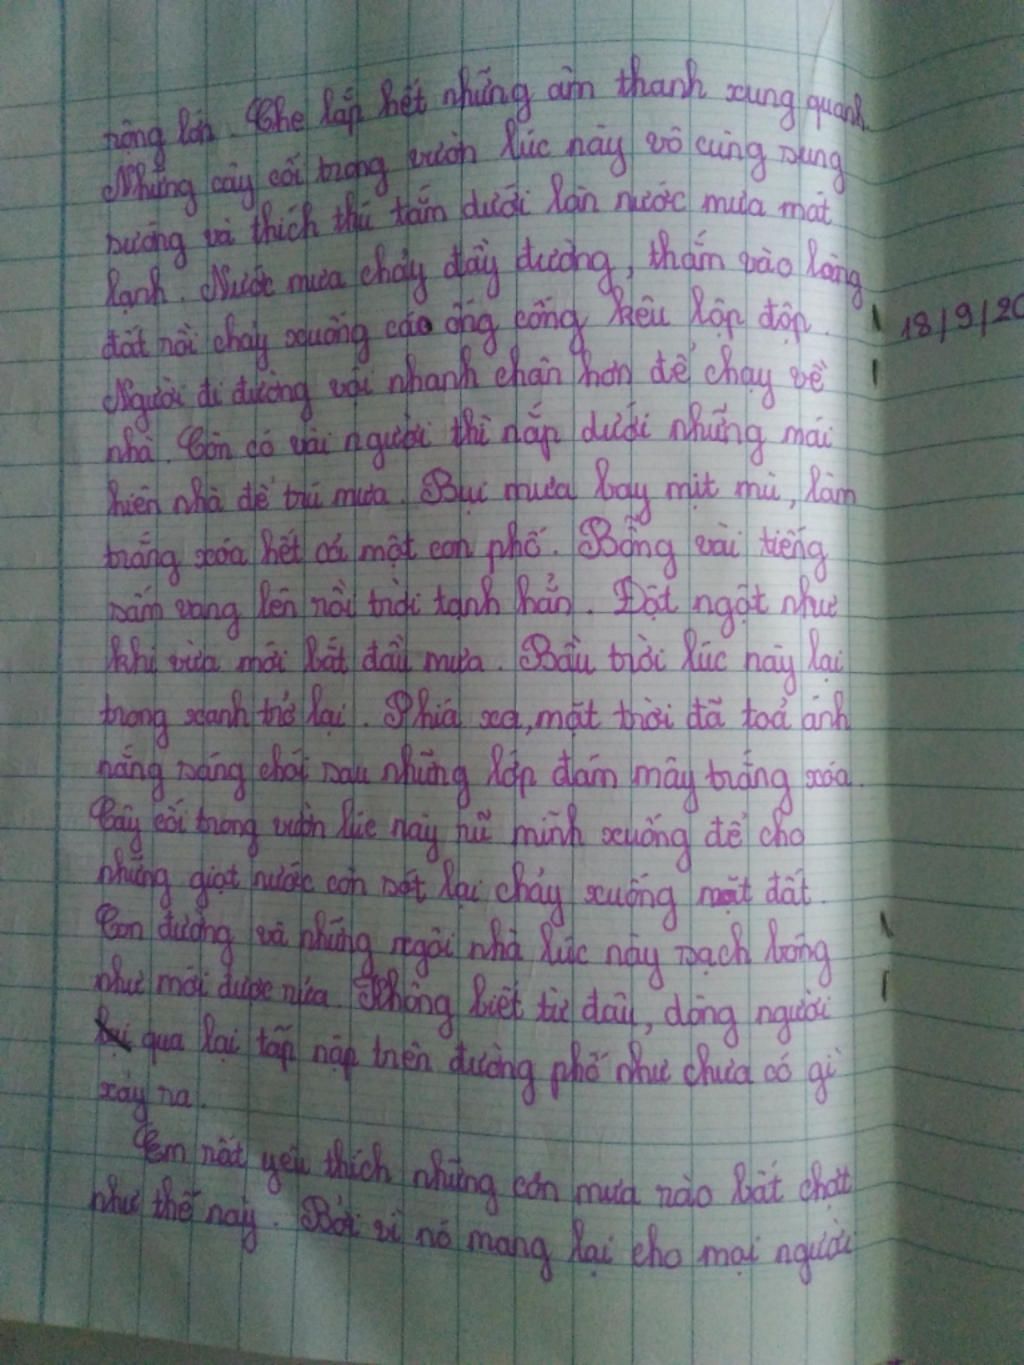 rộng lớn. Che lấp hết những âm thanh xung quanh.
Những cây cối trong vườn lúc này vô cùng sung
sướng và thích thú tắm dưới làn nước mưa mát
lạnh. Nước mưa chảy đầy đường, thấm vào lòng
đất rồi chảy xuống các ống cống kêu lộp độp.
Người đi đường vội nhanh chân hơn để chạy về
nhà. Còn có vài người thì nấp dưới những mái
hiên nhà để trú mưa. Bụi mưa bay mịt mù, làm
trắng xóa hết cả một con phố. Bỗng vài tiếng
sấm vang lên rồi trời tạnh hẳn. Đột ngột như
khi vừa mới bắt đầu mưa. Bầu trời lúc này lại
trong xanh trở lại. Phía xa, mặt trời đã toả ánh
nắng sáng chói sau những lớp đám mây trắng xóa.
Cây cối trong vườn lúc này rũ mình xuống để cho
những giọt nước còn sót lại chảy xuống mặt đất.
Con đường và những ngôi nhà lúc này sạch bóng
như mới được rửa. Không biết từ đâu, dòng người
qua lại tấp nập trên đường phố như chưa có gì
xảy ra.
Em rất yêu thích những cơn mưa rào bất chợt
như thế này. Bởi vì nó mang lại cho mọi người
18/9/20